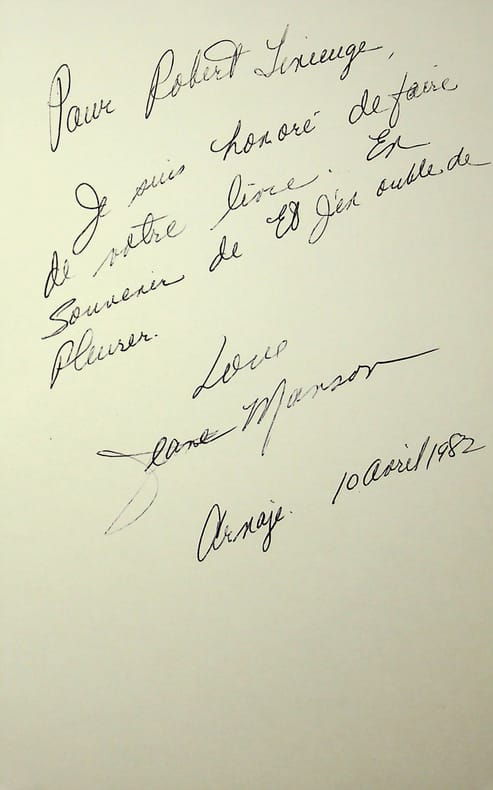 Pour Robert
Je suis honoré de faire
de votre livre. En
Souvenir de Et J'en oublie de
Pleurer.
Love
Jeane Manson
Arnaje. 10 avril 1982